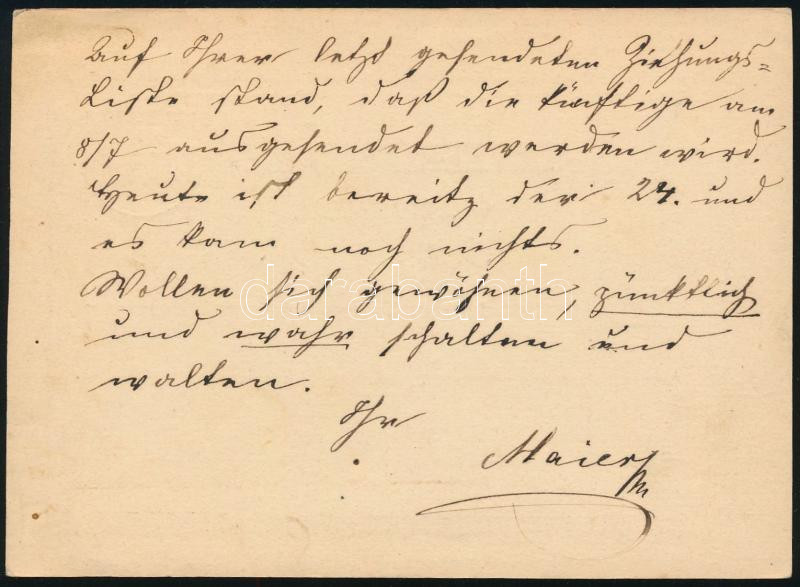 Auf Ihrer letzt gesendeten Ziehungs=
Liste stand, daß die künftige am
8/7 ausgesendet werden wird.
Heute ist bereitz der 24. und
es kam noch nichts.
Wollen sich gewöhnen, pünktlich
und wahr schalten und
walten.
Ihr
Maier
darabanth